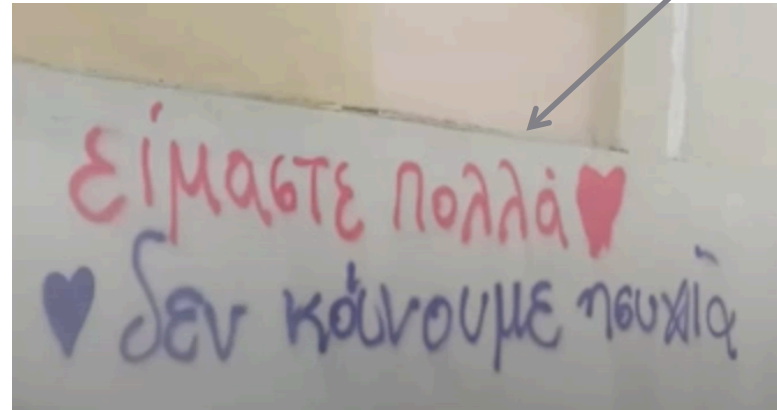 είμαστε πολλά
δεν κάνουμε ησυχία